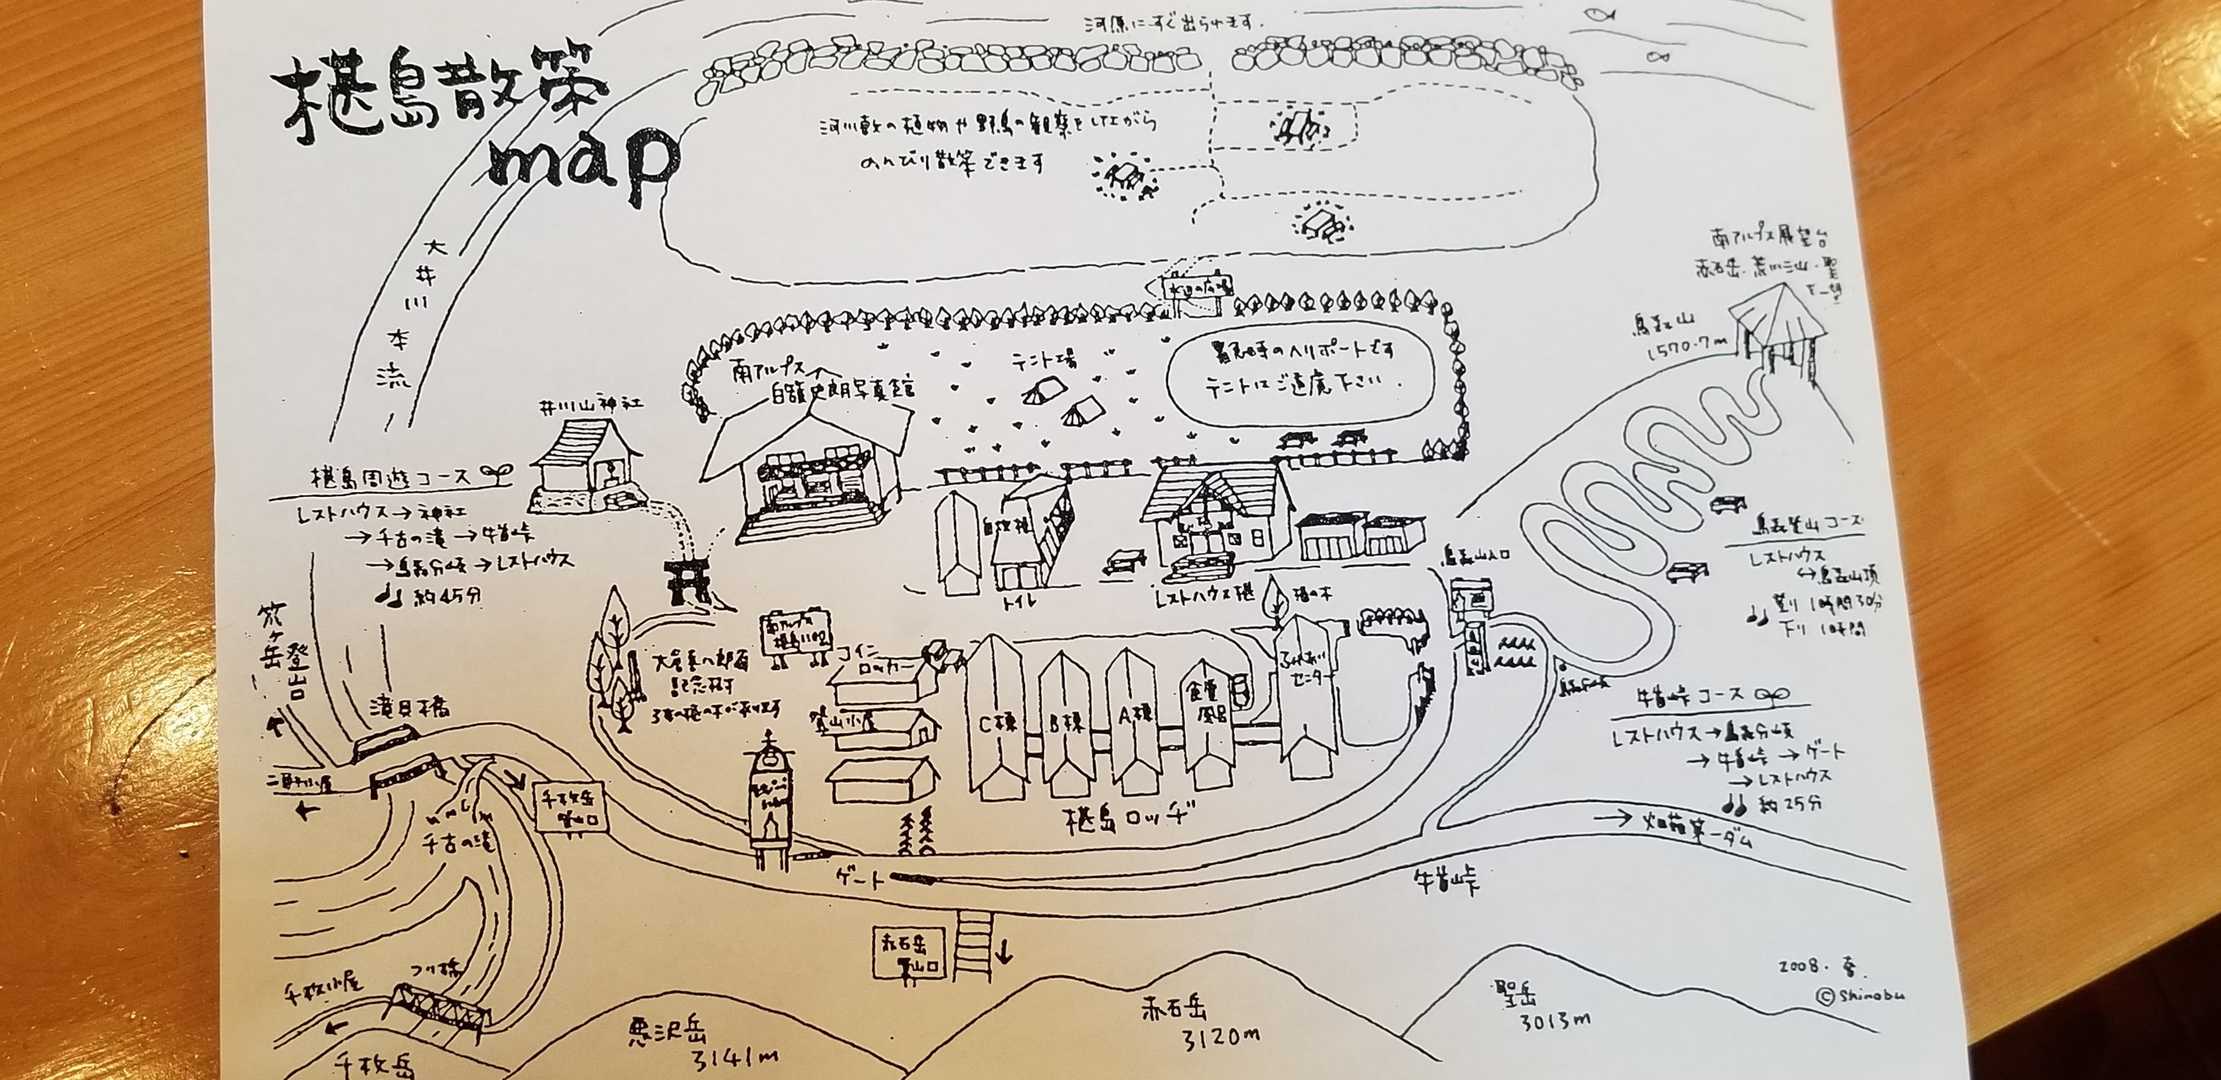 椹島散策
map
河原にすぐ出られます.
河川敷の植物や野鳥の観察をしながら
のんびり散策できます
大井川本流
水辺の広場
南アルプス展望台
赤石岳.荒川三山.聖
を一望
鳥森山
1570.7m
テント場
緊急時のヘリポートです
テントはご遠慮下さい.
南アルプス
白籏史朗写真館
井川山神社
椹島周遊コース
レストハウス→神社
→千古の滝→牛首峠
→鳥森分岐→レストハウス
約45分
トイレ
レストハウス椹
鳥森山入口
鳥森登山コース
レストハウス
↔鳥森山頂
登り 1時間30分
下り 1時間
笊ヶ岳登山口
滝見橋
二軒小屋
千枚岳
登山口
千古の滝
南アルプス
椹島ロッヂ
大倉喜八郎翁
記念碑
3本の
コイン
ロッカー
登山小屋
C棟
B棟
A棟
食堂
風呂
ふれあい
センター
椹島ロッヂ
牛首峠コース
レストハウス→鳥森分岐
→牛首峠→ゲート
→レストハウス
約25分
→畑薙第一ダム
ゲート
牛首峠
赤石岳
登山口
千枚小屋
つり橋
千枚岳
悪沢岳
3141m
赤石岳
3120m
聖岳
3013m
2008.春.
©Shinobu